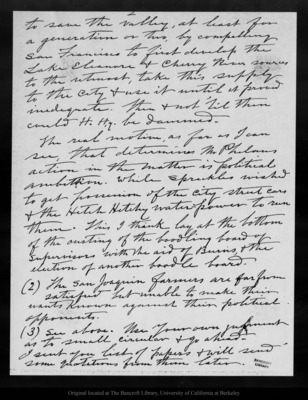 to save the Valley, at least for
a generation or two, by compelling
San Francisco to first develop the
Lake Eleanor & Cherry River sources
to the utmost, take this supply
to the City & use it until it proved
inadequate. Then & not 'til then
could H. Hy. be dammed.
The real motive, as far as I can
see, that determines Mr Phelans
action in the matter is political
ambition. While Spreckles wished
to get possession of the City street cars
& the Hetch Hetchy water power to run
them. This I think lay at the bottom
of the ousting of the boodling board of
Supervisors with the aid of Burns & the
election of another boodle board.
(2) The San Joaquin Farmers are far from
satisfied but unable to make their
wants known against their political
opponents.
(3) See above. Use your own judgment
as to small circular & go ahead.
I sent you list of papers & will send
some quotations from them later.
BANCROFT
LIBRARY
Original located at The Bancroft Library, University of California at Berkeley